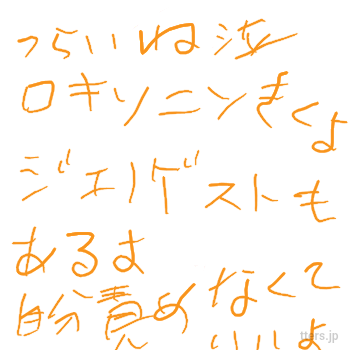 つらいね泣
ロキソニンきくよ
ジエノゲストも
あるよ
自分責めなくて
いいよ